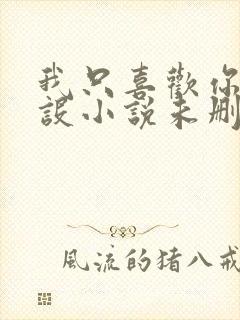 我只喜歡你
設小說未刪
風流的猪八戒